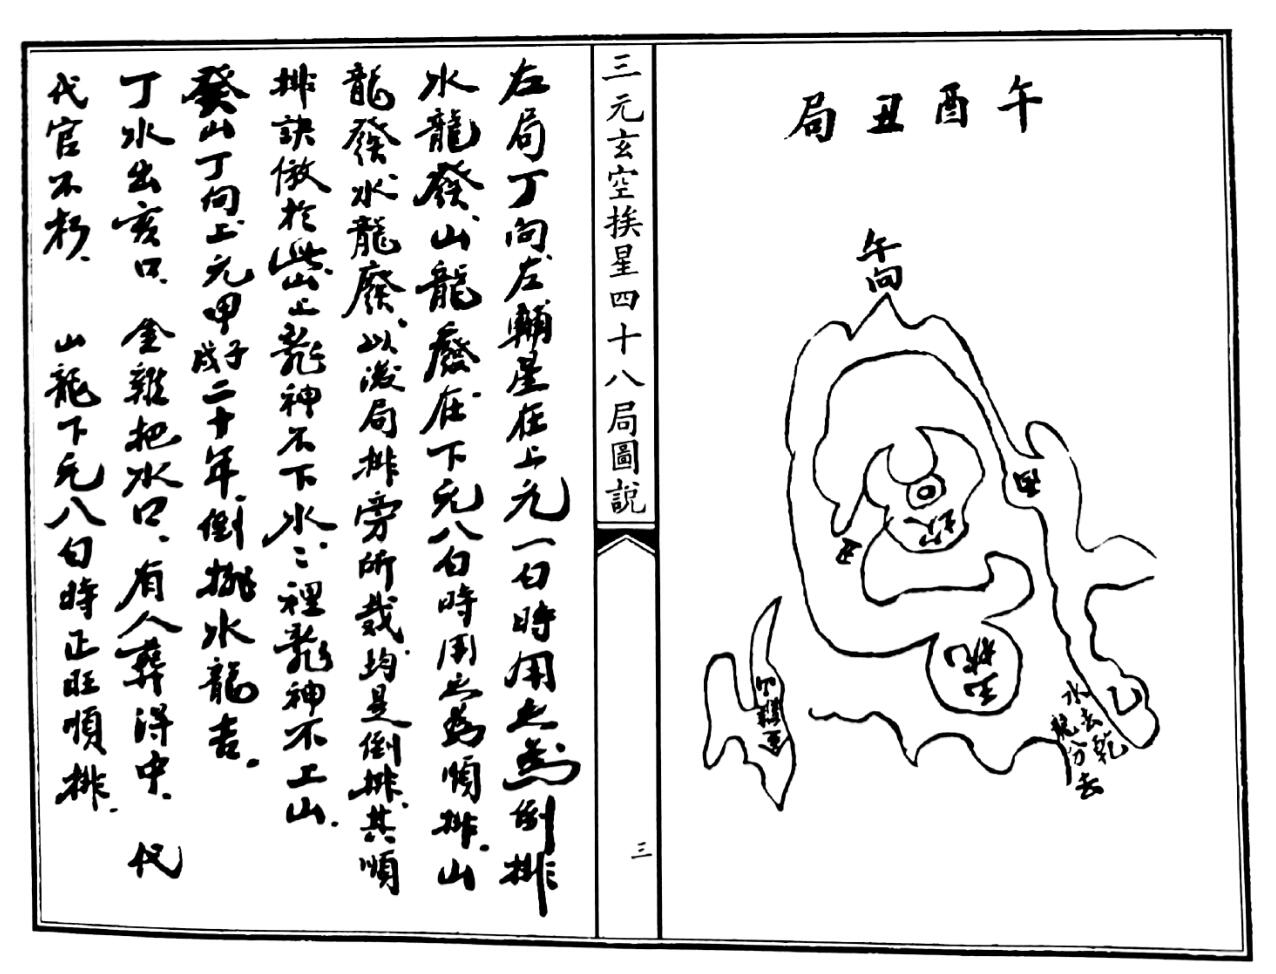 午酉丑局
午向
酉
丑
穴
玉枕
金雞山
水去乾
龍分去
乙
三元玄空挨星四十八局圖說
三
左局丁向左輔星在上元一白時用之為倒排
水龍發山龍廢在下元八白時用之為順排山
龍發水龍廢以後局排旁所裁均是倒排其順
排訣倣於此山上龍神不下水〻裡龍神不上山
癸山丁向上元甲子戌二十年倒排水龍吉
丁水出亥口金雞把水口有人葬得中代
代官不朽 山龍下元八白時正旺順排